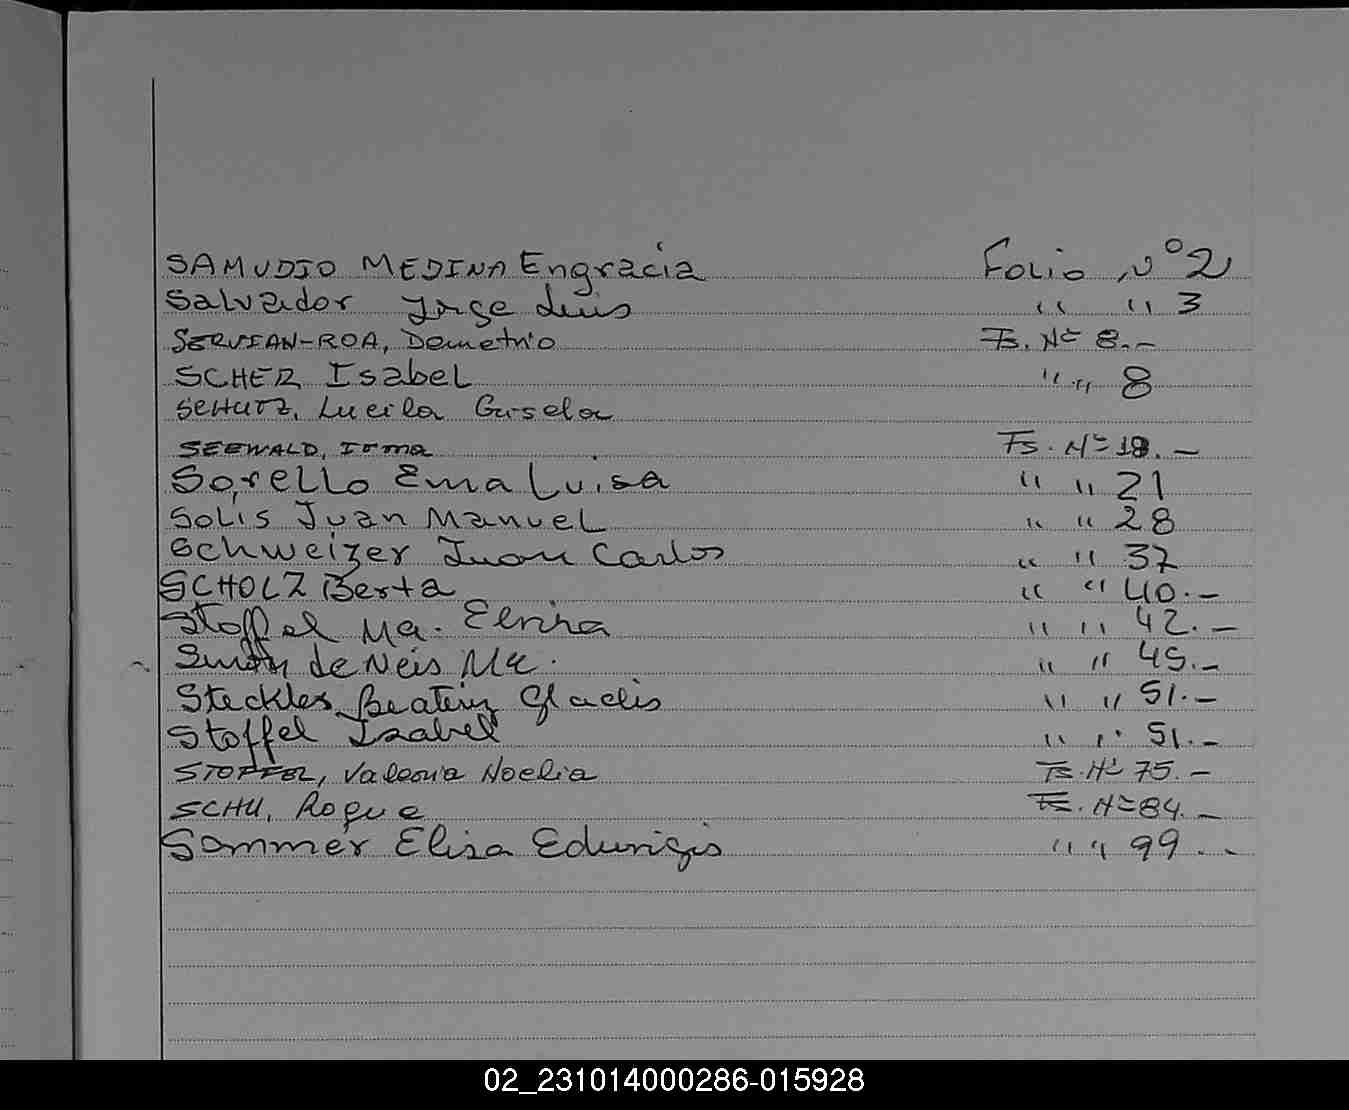 SAMUDIO MEDINA Engracia Folio Nº 2
Salvador Jorge Luis " " 3
SERVIAN-ROA, Demetrio Fs. Nº 8.-
SCHER Isabel " " 8
SCHUTZ, Lucila Gisela
SEEWALD, Irma Fs. Nº 18.-
Sorello Ema Luisa " " 21
Solis Juan Manuel " " 28
Schweizer Juan Carlos " " 37
SCHOLZ Berta " " 40.-
Stoffel Ma. Elvira " " 42.-
Simón de Neis Ma. " " 45.-
Steckler Beatriz Gladis " " 51.-
Stoffel Isabel " " 51.-
STOFFEL, Valeria Noelia Fs. Nº 75.-
SCHU, Roque Fs. Nº 84.-
Sommer Elisa Eduvigis " " 99.-
02_231014000286-015928